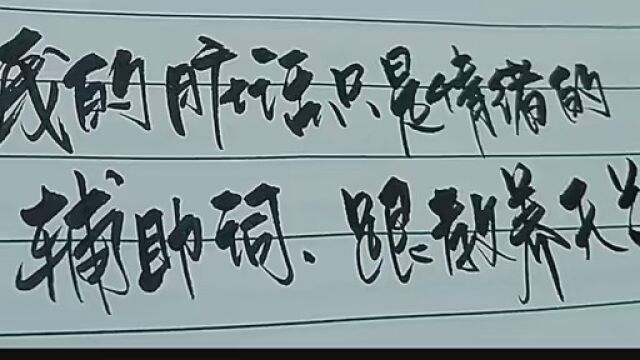 我的脏话只是情绪的
辅助词、跟教养无关